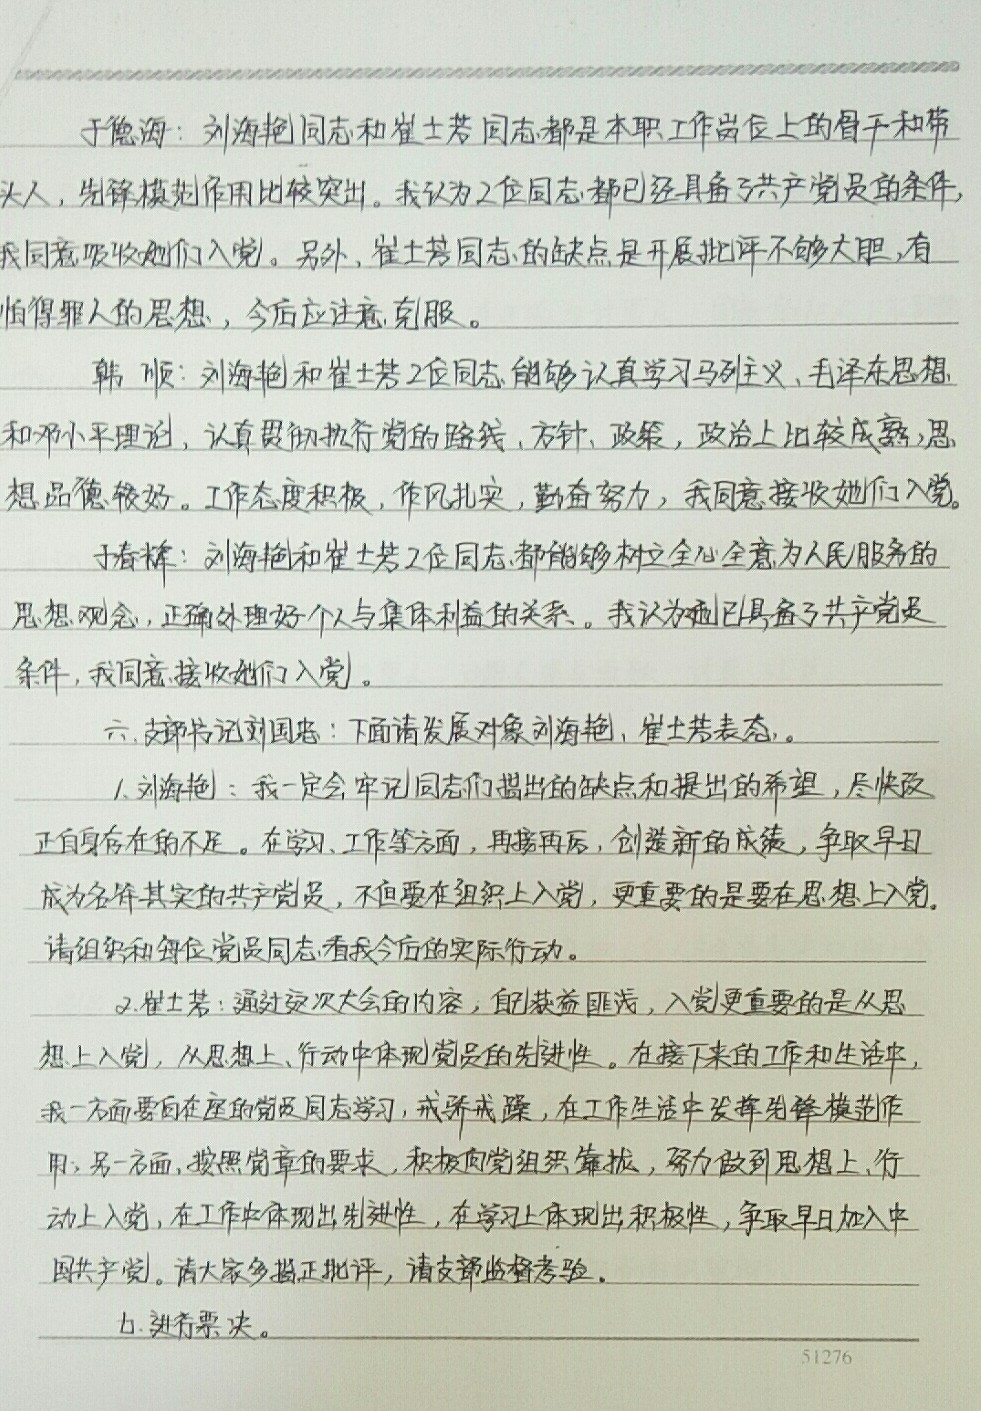 于德海：刘海艳同志和崔士芳同志都是本职工作岗位上的骨干和带
头人，先锋模范作用比较突出。我认为2位同志都已经具备了共产党员的条件，
我同意吸收她们入党。另外，崔士芳同志的缺点是开展批评不够大胆，有
怕得罪人的思想，今后应注意克服。
韩 顺：刘海艳和崔士芳2位同志能够认真学习马列主义、毛泽东思想
和邓小平理论，认真贯彻执行党的路线、方针、政策，政治上比较成熟，思
想品德较好。工作态度积极，作风扎实，勤奋努力，我同意接收她们入党。
于春辉：刘海艳和崔士芳2位同志都能够树立全心全意为人民服务的
思想观念，正确处理好个人与集体利益的关系。我认为她已具备了共产党员
条件，我同意接收她们入党。
六.支部书记刘国忠：下面请发展对象刘海艳、崔士芳表态。
1.刘海艳：我一定会牢记同志们指出的缺点和提出的希望，尽快改
正自身存在的不足。在学习、工作等方面，再接再厉，创造新的成绩，争取早日
成为名符其实的共产党员，不但要在组织上入党，更重要的是要在思想上入党。
请组织和每位党员同志看我今后的实际行动。
2.崔士芳：通过这次大会的内容，自己获益匪浅，入党更重要的是从思
想上入党，从思想上、行动中体现党员的先进性。在接下来的工作和生活中，
我一方面要向在座的党员同志学习，戒骄戒躁，在工作生活中发挥先锋模范作
用；另一方面，按照党章的要求，积极向党组织靠拢，努力做到思想上、行
动上入党，在工作中体现出先进性，在学习上体现出积极性，争取早日加入中
国共产党。请大家多指正批评，请支部监督考验。
七.进行票决。
51276